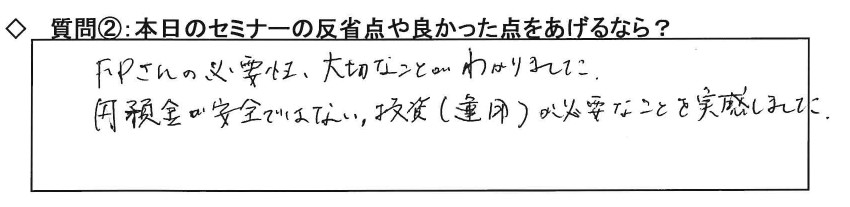 ◇ 質問②:本日のセミナーの反省点や良かった点をあげるなら?
FPさんの必要性、大切なことがわかりました.
円預金が安全ではない,投資(運用)が必要なことを実感しました.